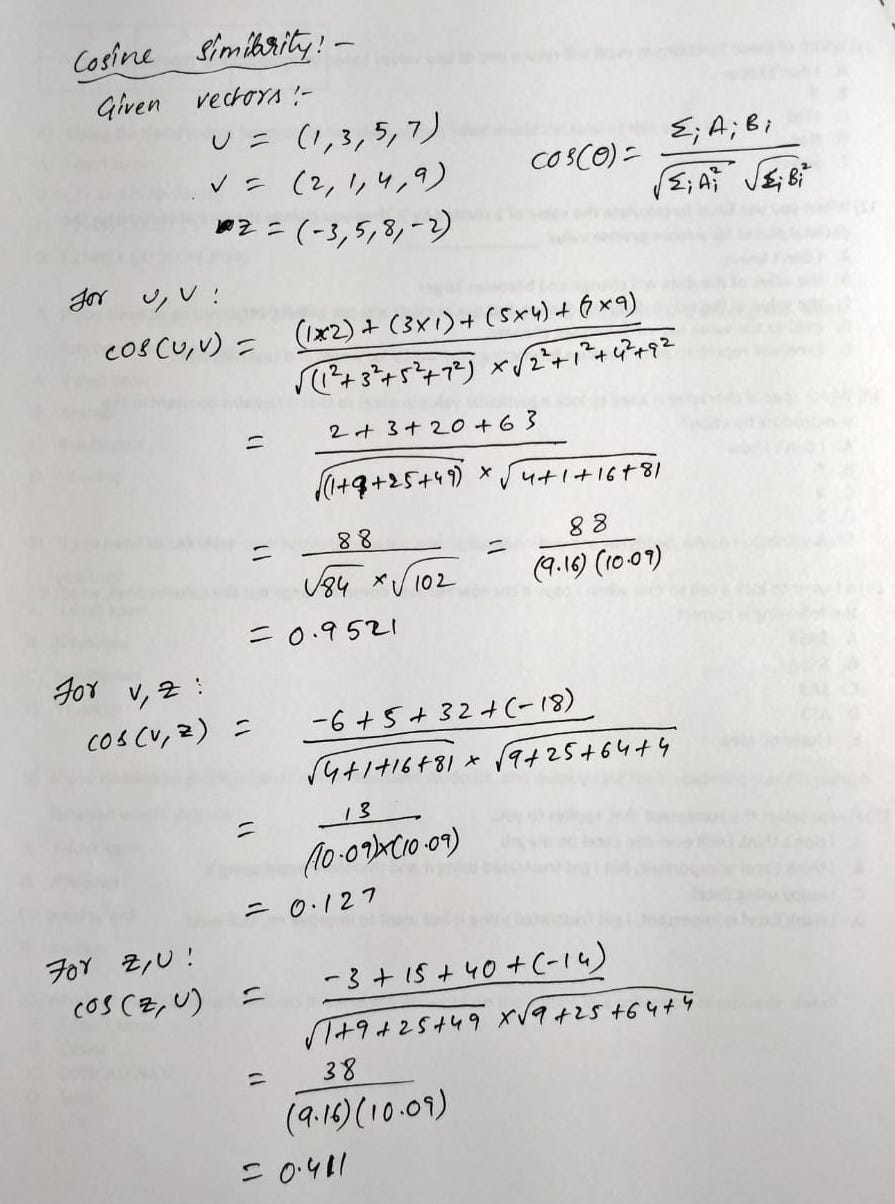 Cosine Similarity:-
Given vectors:-
U = (1,3,5,7)
V = (2,1,4,9)
z = (-3,5,8,-2)
cos(θ) = Σi Ai Bi / √Σi Ai² √Σi Bi²
For U, V :
cos(U,V) = (1×2) + (3×1) + (5×4) + (7×9) / √(1²+3²+5²+7²) × √2²+1²+4²+9²
= 2+3+20+63 / √(1+9+25+49) × √4+1+16+81
= 88 / √84 × √102 = 88 / (9.16) (10.09)
= 0.9521
For V, z :
cos(V,z) = -6+5+32+(-18) / √4+1+16+81 × √9+25+64+4
= 13 / (10.09)×(10.09)
= 0.127
For z, U :
cos(z,U) = -3+15+40+(-14) / √1+9+25+49 × √9+25+64+4
= 38 / (9.16)(10.09)
= 0.411